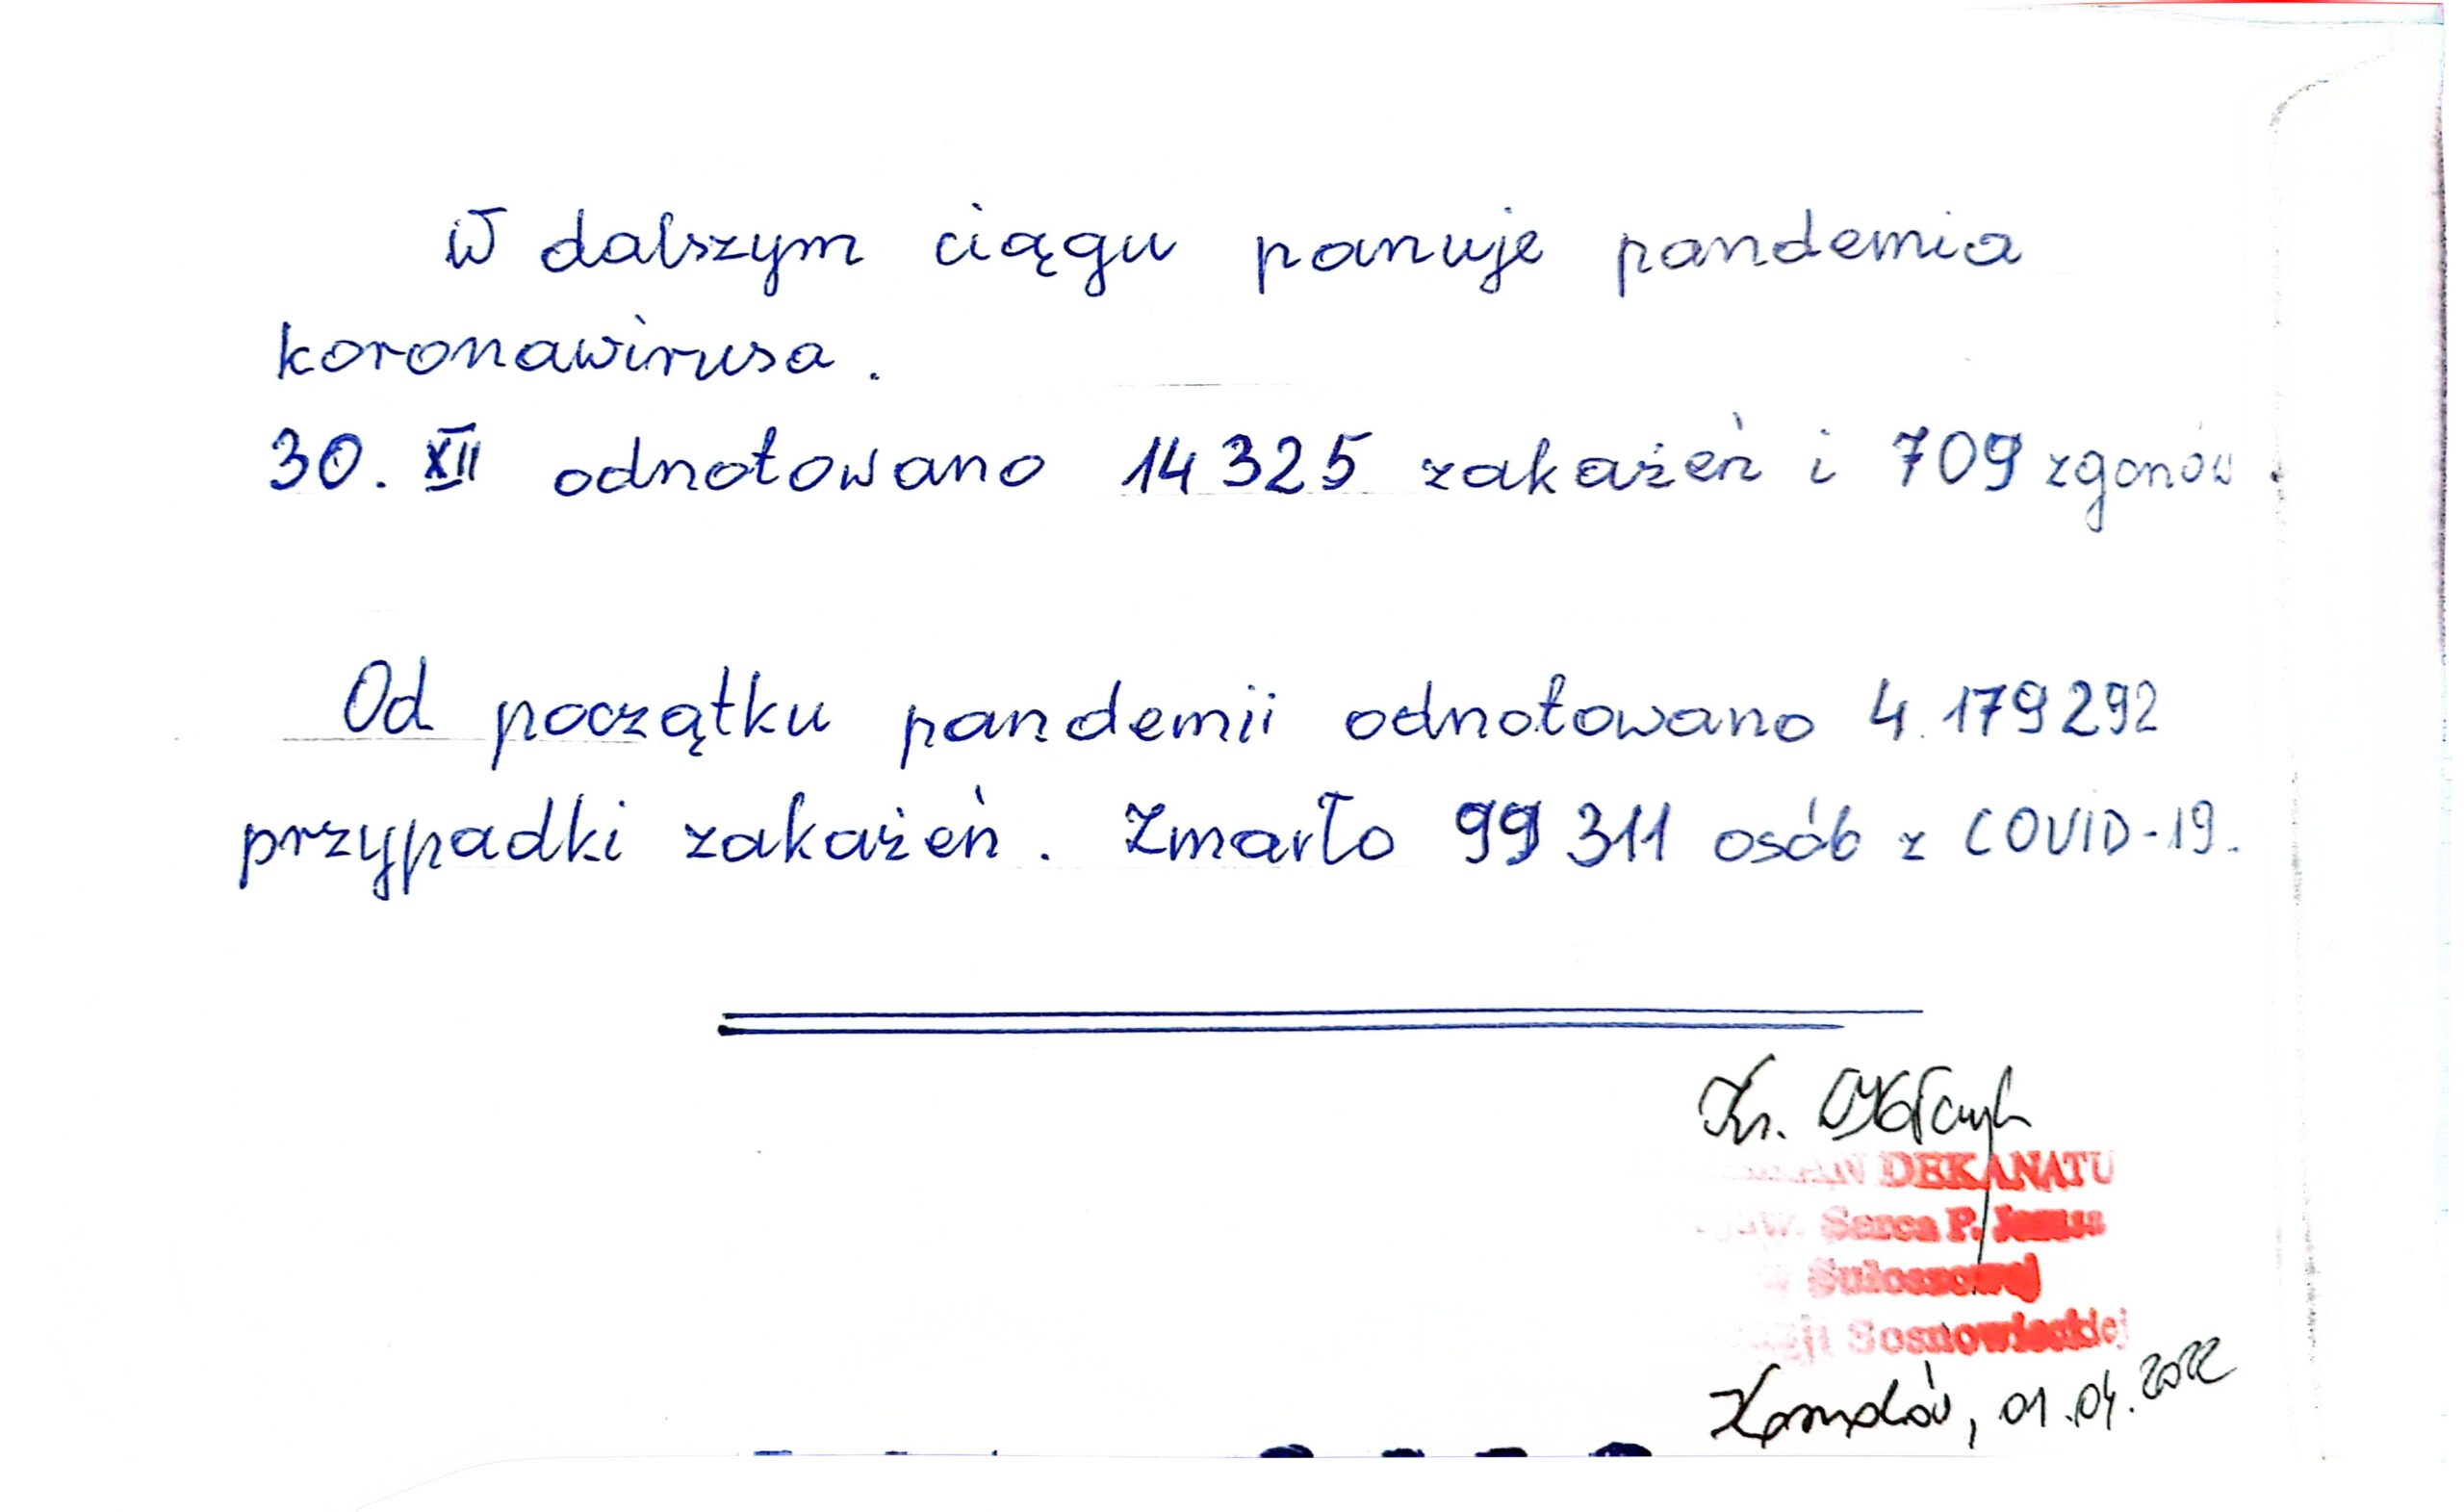 W dalszym ciągu panuje pandemia
koronawirusa.
30. XII odnotowano 14 325 zakażeń i 709 zgonów.
Od początku pandemii odnotowano 4.179 292
przypadki zakażeń. Zmarło 99 311 osób z COVID-19.
Ks.
DZIEKAN DEKANATU
Najśw. Serca P. Jezusa
w Sułoszowej
Diecezji Sosnowieckiej
01.04.2022